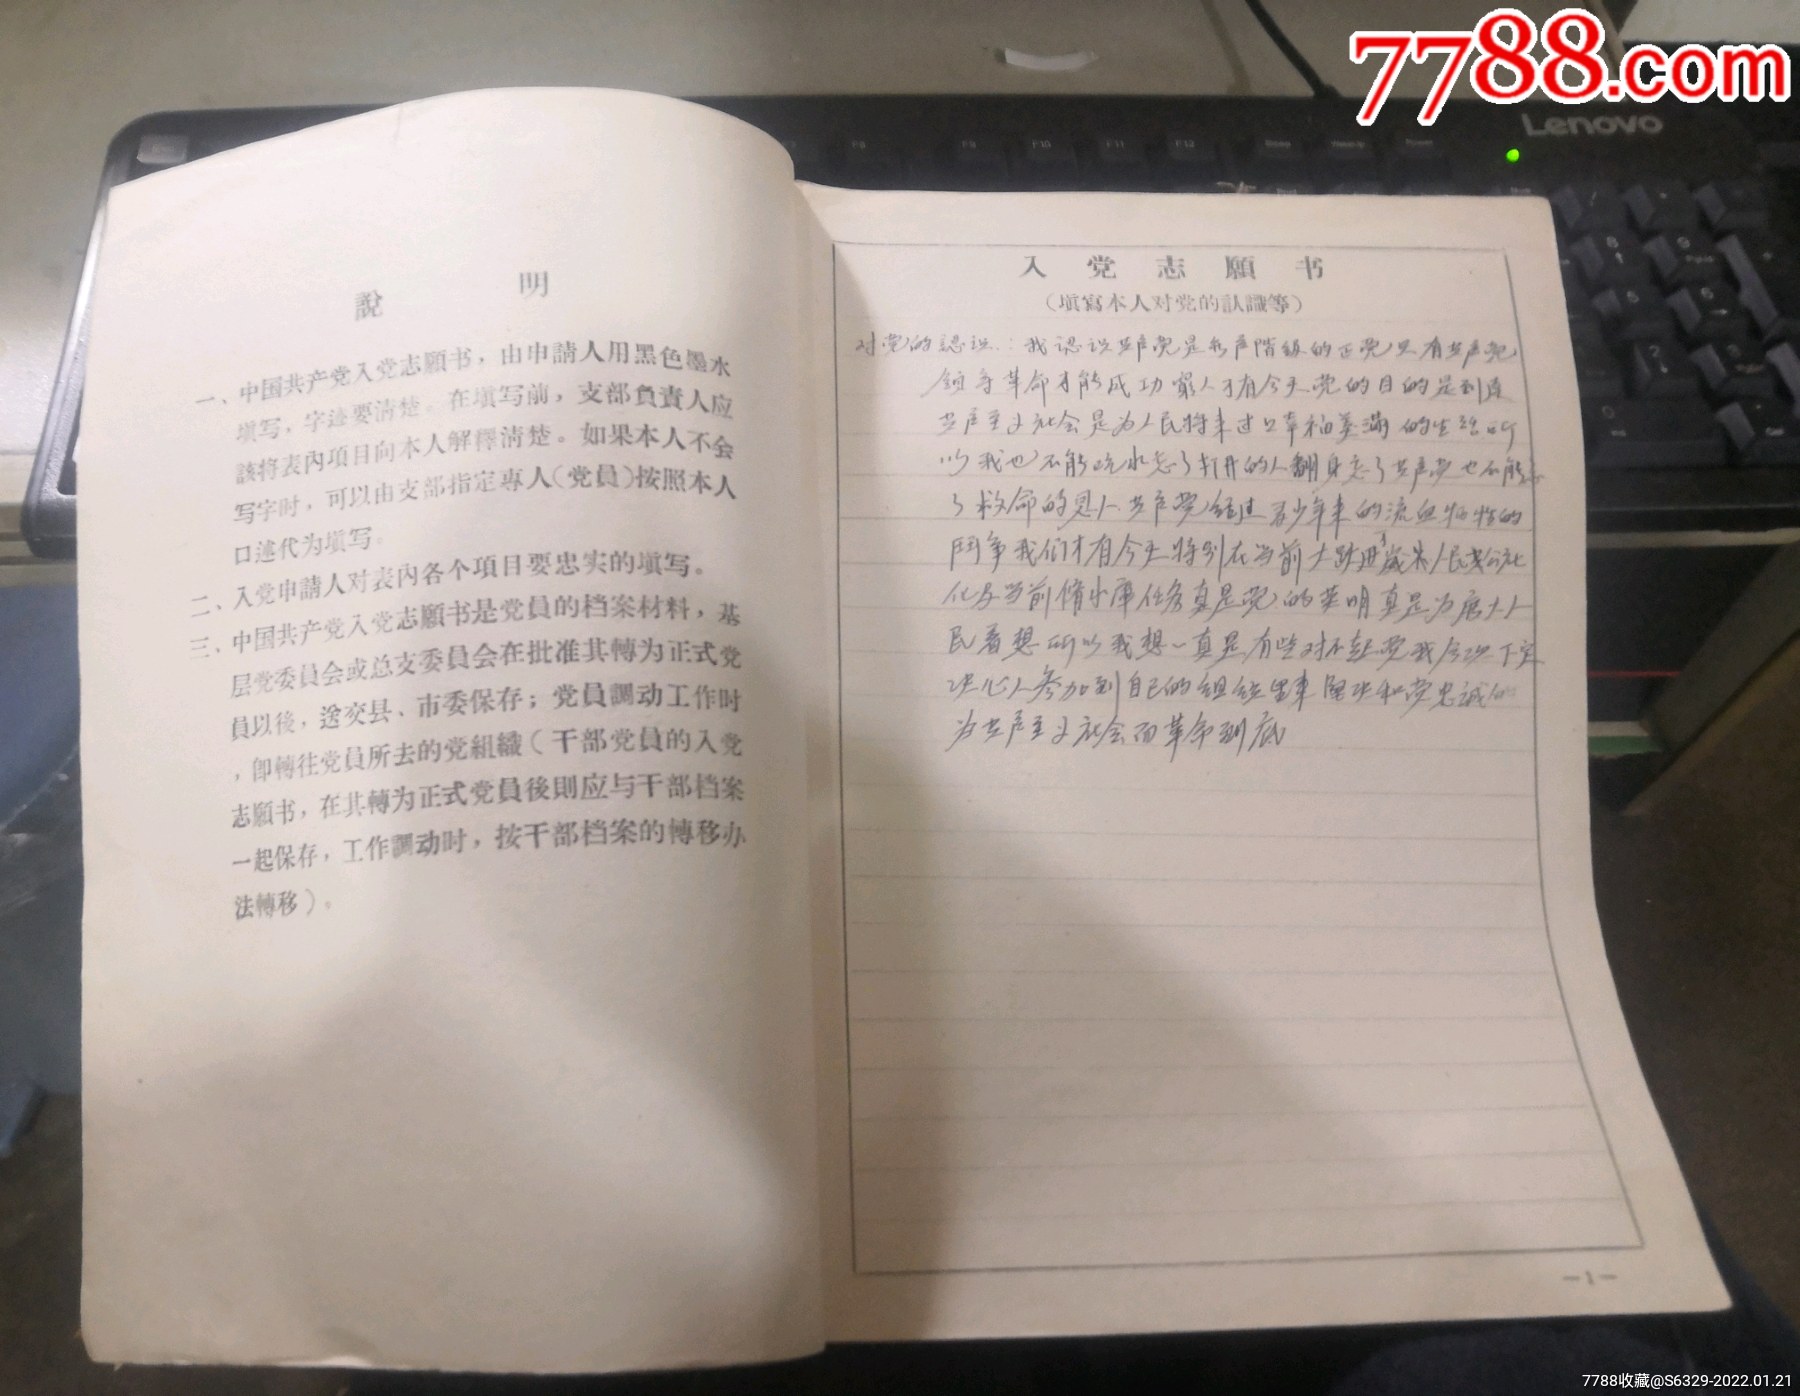 7788.com
Lenovo
說 明
一、中国共产党入党志願书，由申請人用黑色墨水
填写，字迹要清楚。在填写前，支部負責人应
該将表內項目向本人解釋清楚。如果本人不会
写字时，可以由支部指定專人（党員）按照本人
口述代为填写。
二、入党申請人对表內各个項目要忠实的填写。
三、中国共产党入党志願书是党員的档案材料，基
层党委員会或总支委員会在批准其轉为正式党
員以後，送交县、市委保存；党員調动工作时
，卽轉往党員所去的党組織（干部党員的入党
志願书，在其轉为正式党員後則应与干部档案
一起保存，工作調动时，按干部档案的轉移办
法轉移）。
入党志願书
（填寫本人对党的認識等）
对党的認识：我認识共产党是无产阶級的正党只有共产党
領导革命才能成功窮人才有今天党的目的是到達
共产主义社会是为人民将来过上幸福美滿的生活所
以我也不能吃水忘了打井的人翻身忘了共产党也不能忘
了救命的恩人共产党經过多少年来的流血牺牲的
鬥争我们才有今天特别在当前大跃进成果人民公社
化及当前修水庫任务真是党的英明真是为广大人
民着想所以我想一真是有些对不起党我今次下定
决心人参加到自己的組織里来堅决和党忠誠的
为共产主义社会而革命到底
—1—
7788收藏@S6329-2022.01.21